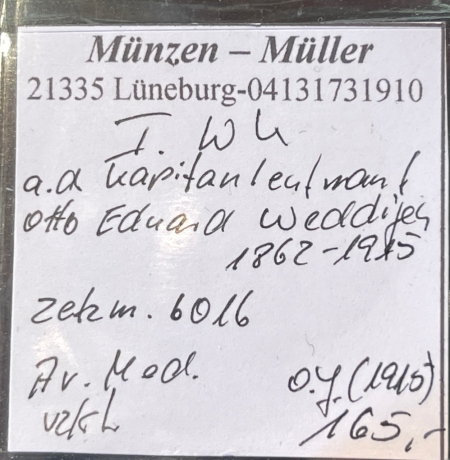 Münzen – Müller
21335 Lüneburg-04131731910
I. WK
a.d Kapitänleutnant
Otto Eduard Weddigen
1862-1915
zetzm. 6016
Ar. Med. o.J. (1915)
vz/st 165,-